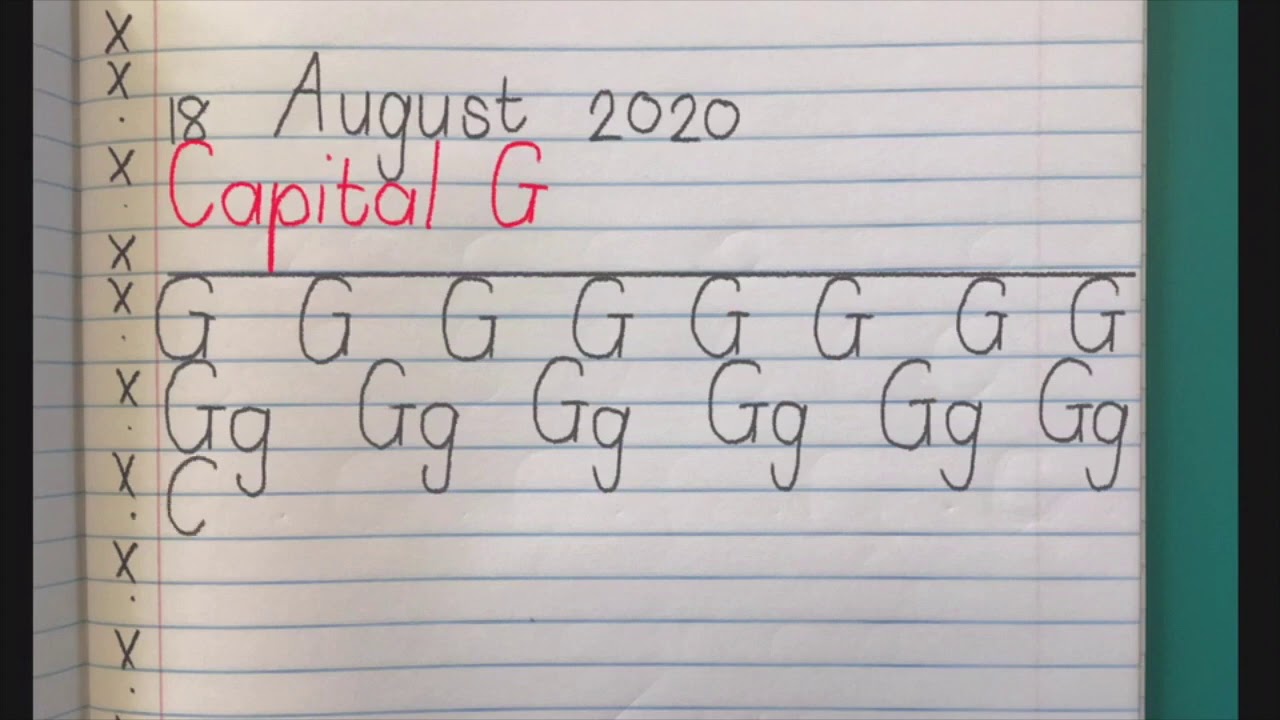 X
X
. 18 August 2020
X Capital G
.
X
X G G G G G G G G
.
X Gg Gg Gg Gg Gg Gg
.
X C
.
X
.
X
.